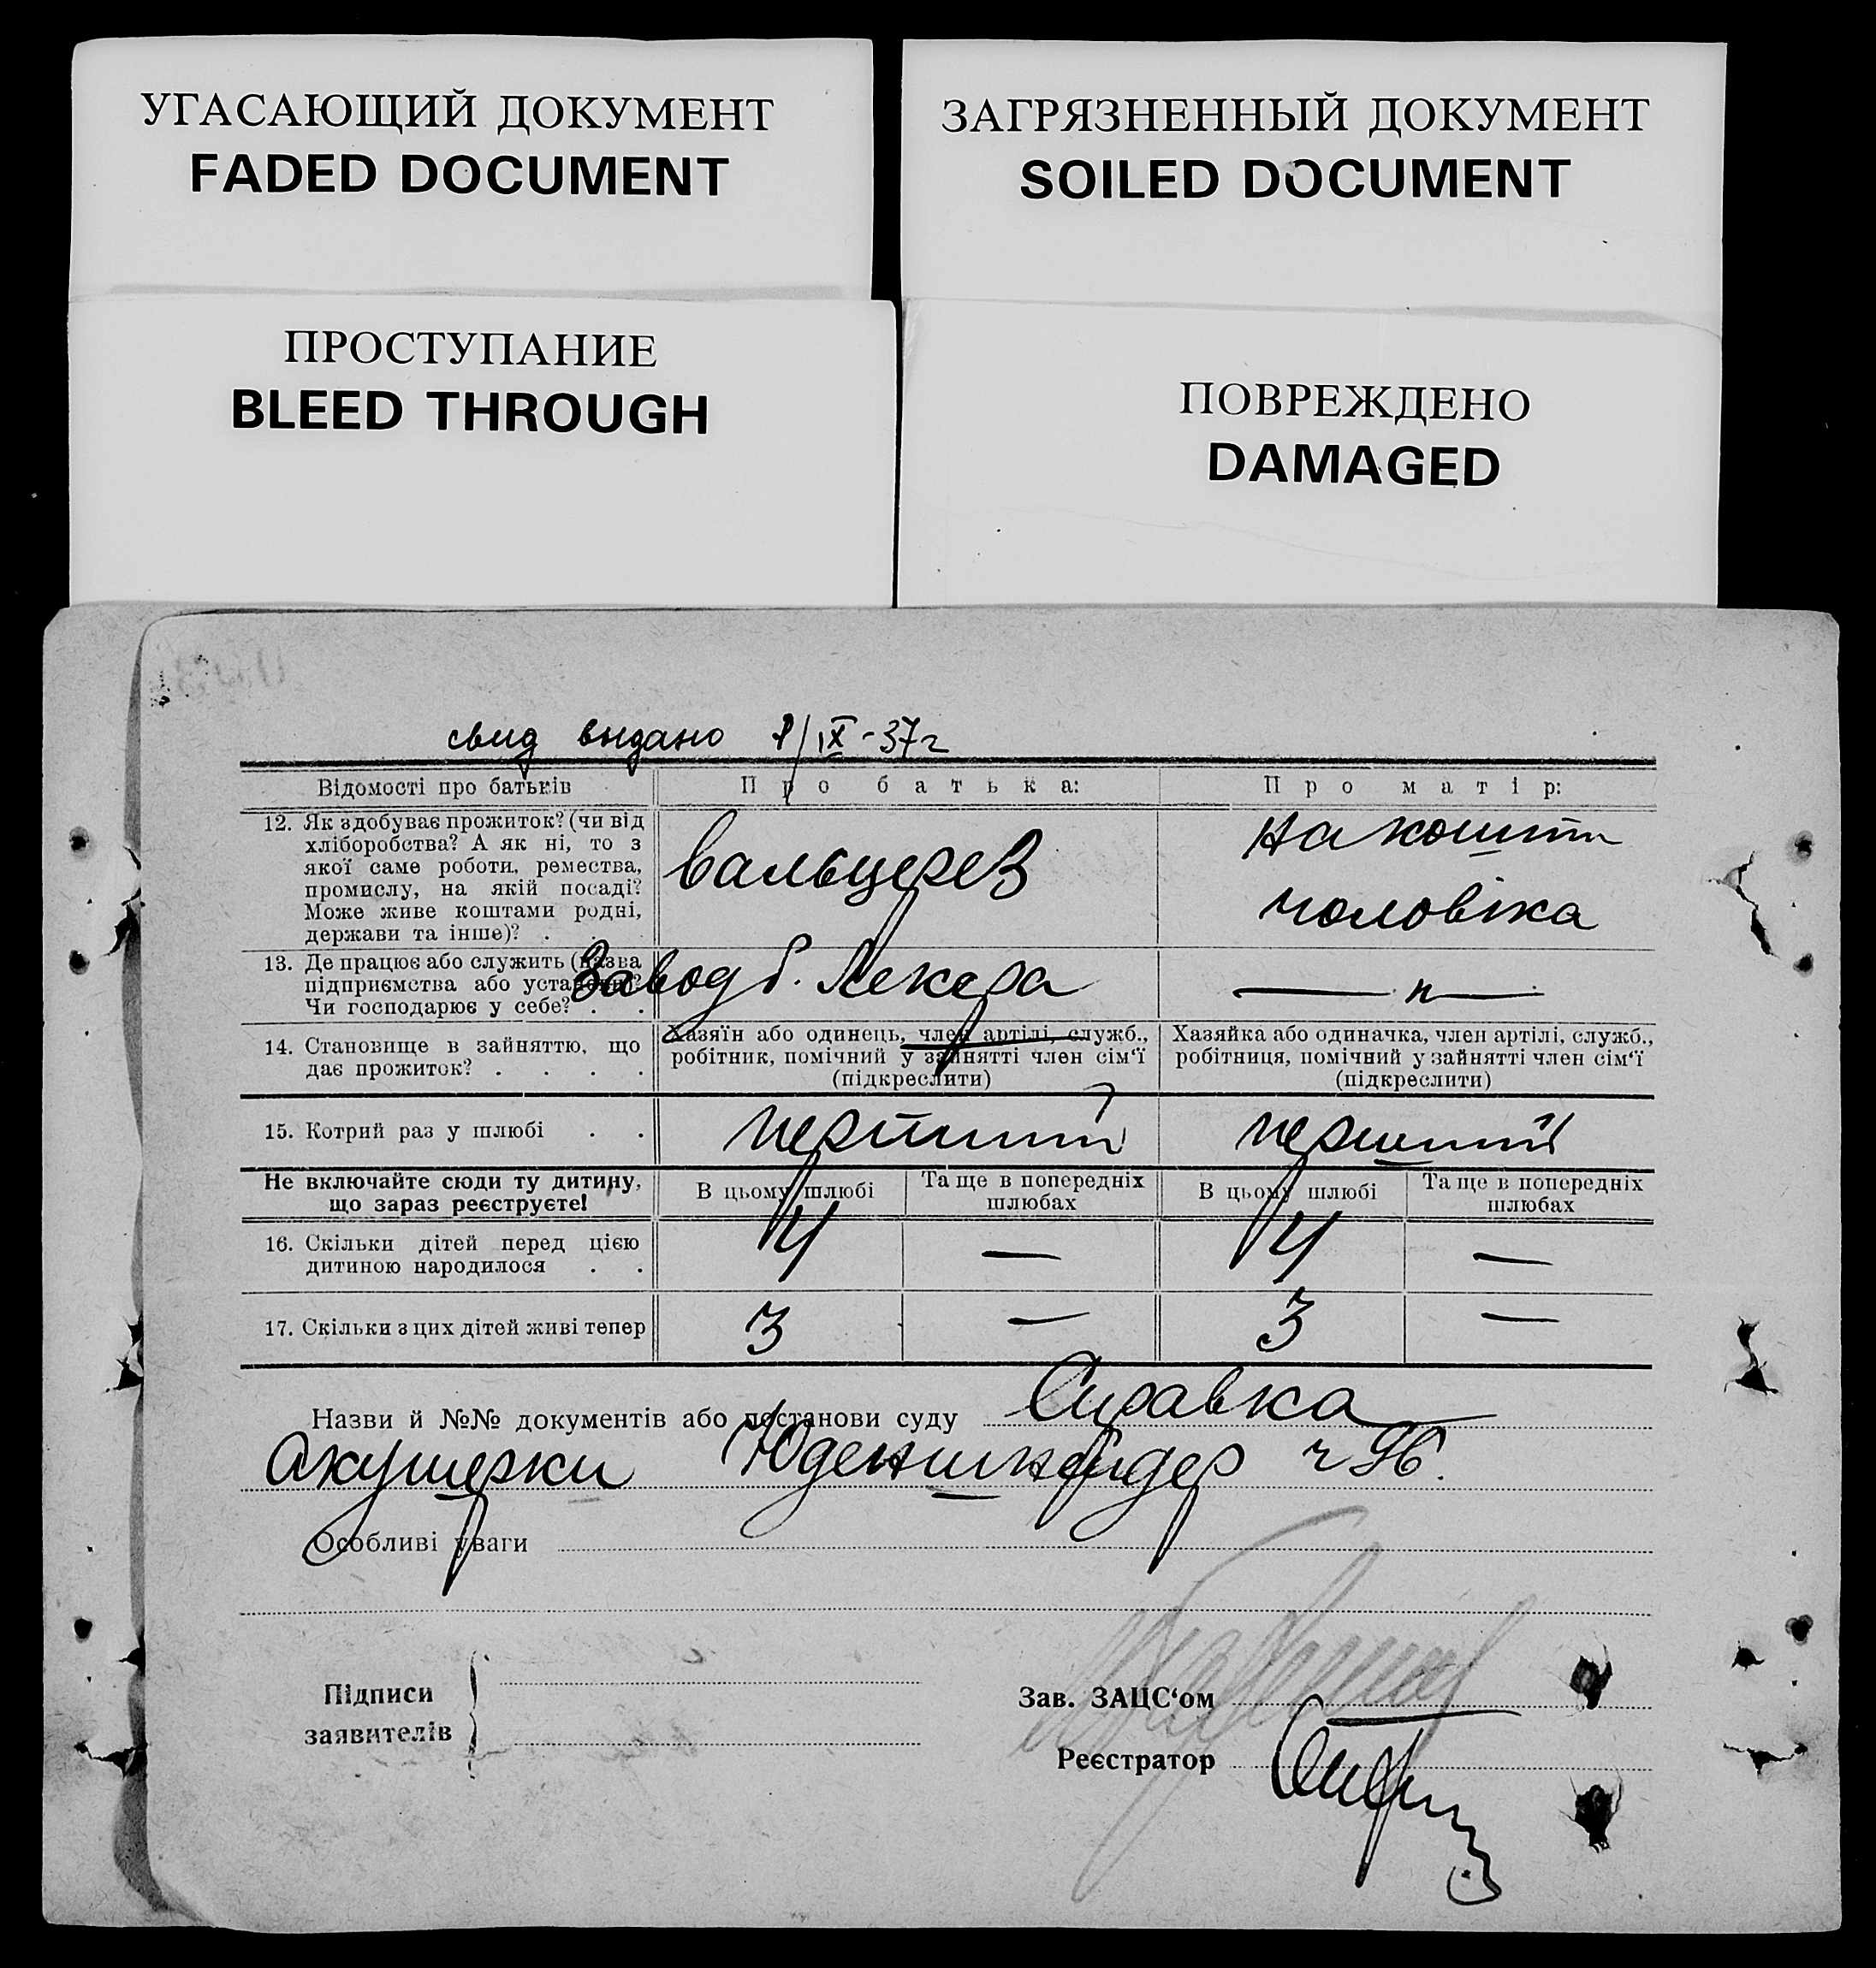 УГАСАЮЩИЙ ДОКУМЕНТ
FADED DOCUMENT
ЗАГРЯЗНЕННЫЙ ДОКУМЕНТ
SOILED DOCUMENT
ПРОСТУПАНИЕ
BLEED THROUGH
ПОВРЕЖДЕНО
DAMAGED
свид выдано /IX-37г
Відомості про батьків
Про батька:
Про матір:
12. Як здобуває прожиток? (чи від
хліборобства? А як ні, то з
якої саме роботи, ремества,
промислу, на якій посаді?
Може живе коштами родні,
держави та інше)? .
вальцерев
на кошти
чоловіка
13. Де працює або служить (назва
підприємства або установи)?
Чи господарює у себе? . .
Завод
— п —
14. Становище в зайняттю, що
дає прожиток? . . . .
Хазяїн або одинець, член артілі, служб.,
робітник, помічний у зайнятті член сім‘ї
(підкреслити)
Хазяйка або одиначка, член артілі, служб.,
робітниця, помічний у зайнятті член сім‘ї
(підкреслити)
15. Котрий раз у шлюбі . .
перший
перший
Не включайте сюди ту дитину,
що зараз реєструєте!
В цьому шлюбі
Та ще в попередніх
шлюбах
В цьому шлюбі
Та ще в попередніх
шлюбах
16. Скільки дітей перед цією
дитиною народилося . .
4
—
4
—
17. Скільки з цих дітей живі тепер
3
—
3
—
Назви й №№ документів або постанови суду Справка
Акушерки ч 96.
Особливі уваги
Підписи
заявителів
Зав. ЗАЦС‘ом
Реєстратор